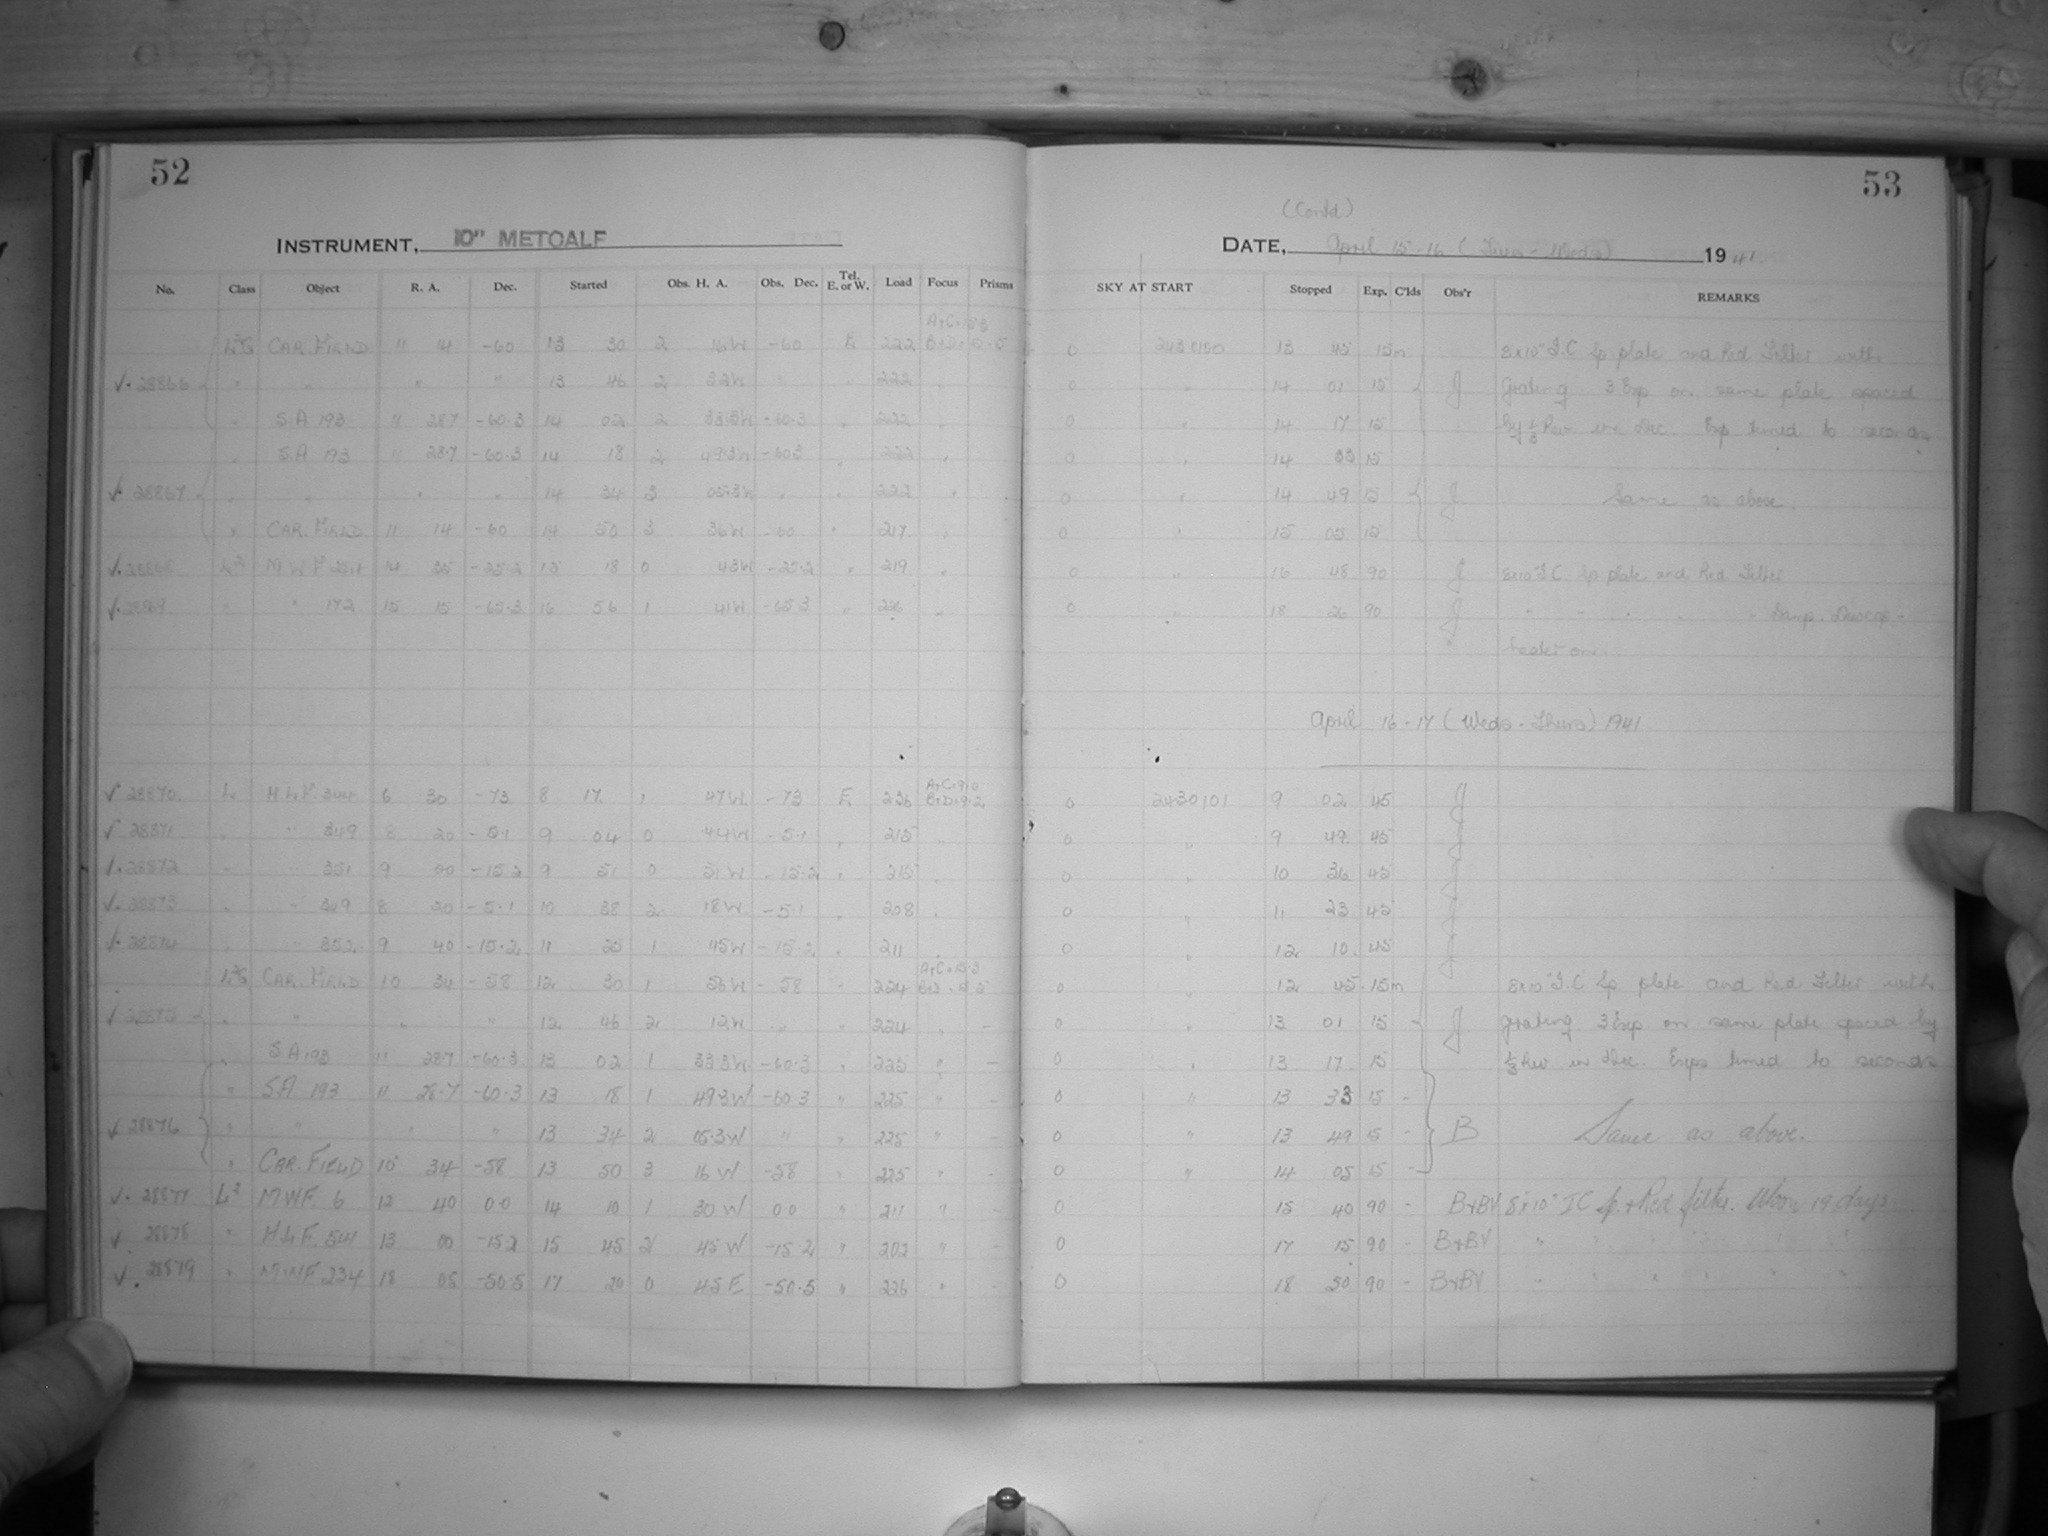 52
INSTRUMENT, 10" METCALF
No. Class Object R. A. Dec. Started Obs. H. A. Obs. Dec. Tel. E. or W. Load Focus Prisms
A+C=15.3
CAR. FIELD 11 14 -60 13 30 2 16W -60 E 222
✓. 28866 " " " " 13 46 2 32W " " 222
" SA 193 11 28.7 -60.3 14 02 2 33.3W -60.3 " 222
" SA 193 " 28.7 -60.3 14 18 2 49.3W -60.3 " 222 "
✓. 28867 " " " " 14 34 3 05.3W " " 222 "
" CAR. FIELD 11 14 -60 14 50 3 36W -60 " 217 "
✓. 28868 L² MWF 14 35 -25.2 15 18 0 43W -25.2 " 219 "
✓. 28869 " " 172 15 15 -65.3 16 56 1 41W -65.3 " 226 "
A+C=9.0
✓ 28870 L HLF. 344 6 30 -73 8 17 1 47W -73 E 236 B+D=9.2
✓ 28871 " " 349 8 20 -5.1 9 04 0 44W -5.1 " 215 "
✓. 28872 " " 351 9 00 -15.2 9 51 0 51W -15.2 " 215 "
✓. 28873 " " 349 8 20 -5.1 10 38 2 18W -5.1 " 208 "
✓. 28874 " " 352 9 40 -15.2 11 25 1 45W -15.2 " 211 "
A+C=15.3
CAR. FIELD 10 34 -58 12 30 1 56W -58 224
✓ 28875 " " " " 12 46 2 12W " " 224 " -
" SA 193 11 28.7 -60.3 13 02 1 33.3W -60.3 " 225 " -
" SA 193 " 28.7 -60.3 13 18 1 49.3W -60.3 " 225 " -
✓ 28876 " " " " 13 34 2 05.3W " " 225 " -
" CAR. FIELD 10 34 -58 13 50 3 16W -58 " 225 " -
✓. 28877 L² MWF. 6 12 40 0.0 14 10 1 30W 0.0 " 211 " -
✓. 28878 " HLF. 541 13 00 -15.2 15 45 2 45W -15.2 " 202 " -
✓. 28879 " MWF. 234 18 05 -50.5 17 20 0 45E -50.5 " 226 " -
53
(Contd)
DATE, April 15-16 (Tues - Weds) 1941.
SKY AT START Stopped Exp. C'lds Obs'r REMARKS
0 2430100 13 45 15m 8x10" I.C Sp plate and Red Filter with
0 " 14 01 15 J grating 3 Exp on same plate spaced
0 " 14 17 15 by ⅓ Rev in Dec. Exp timed to seconds
0 " 14 33 15
0 " 14 49 15 J Same as above.
0 " 15 05 15
0 " 16 48 90 J 8x10" I.C. Sp plate and Red Filter
0 " 18 26 90 J " " " " " Damp. Dewcap -
heater on.
April 16-17 (Weds - Thurs) 1941
0 2430101 9 02 45 J
0 " 9 49 45 J
0 " 10 36 45 J
0 " 11 23 45 J
0 " 12 10 45 J
0 " 12 45 15m 8x10" I.C Sp. plate and Red Filter with
0 " 13 01 15 J grating 3 Exp on same plate spaced by
0 " 13 17 15 ⅓ Rev in Dec. Exps timed to seconds
0 " 13 33 15 -
0 " 13 49 15 - B Same as above.
0 " 14 05 15 -
0 15 40 90 - B+BV 8x10" IC Sp. + Red filter. Moon 19 days
0 17 15 90 - B+BV " " " " " "
0 18 50 90 - B+BV " " " " " "